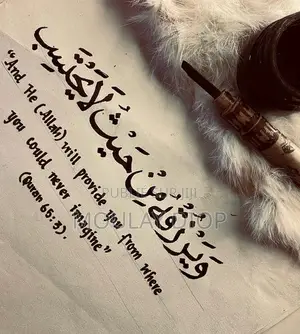 وَيَرْزُقْهُ مِنْ حَيْثُ لَا يَحْتَسِب
"And He (Allah) will provide you from where
you could never imagine"
(Quran 65:3).
PUBLIÉ SUR JIJI
DIOP